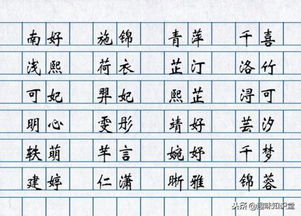 南好 施锦 青萍 千喜
浅熙 荷衣 芷汀 洛竹
可妃 羿妃 熙芷 浔可
明心 雯彤 靖好 芸汐
轶萌 芊言 婉妤 千梦
建婷 仁潇 晰雅 锦蓉
头条号 / 趣味知识堂